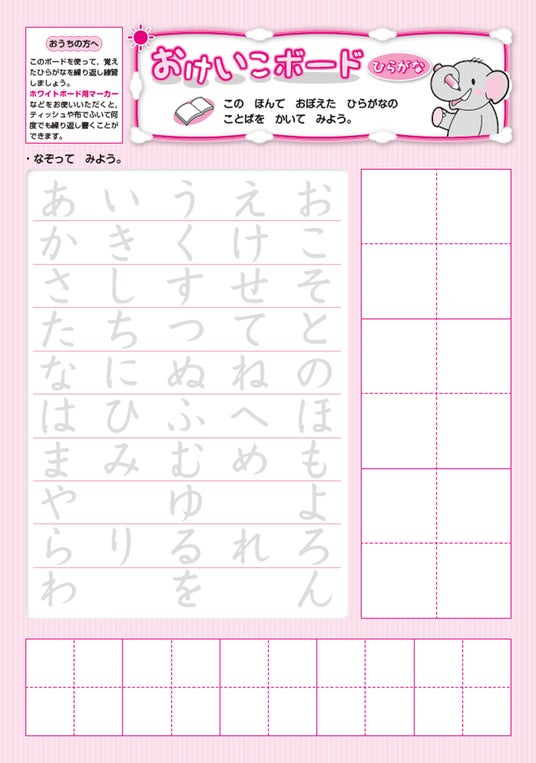 おうちの方へ
このボードを使って、覚え
たひらがなを繰り返し練習
しましょう。
ホワイトボード用マーカー
などをお使いいただくと、
ティッシュや布でふいて何
度でも繰り返し書くことが
できます。
おけいこボード ひらがな
この ほんで おぼえた ひらがなの
ことばを かいて みよう。
・なぞって みよう。
あ い う え お
か き く け こ
さ し す せ そ
た ち つ て と
な に ぬ ね の
は ひ ふ へ ほ
ま み む め も
や ゆ よ
ら り る れ ろ
わ を ん